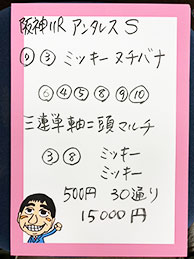 阪神11R アンタレスS
◎ ③ ミッキーヌチバナ
⑥ ④ ⑤ ⑧ ⑨ ⑩
三連単軸二頭マルチ
③ ⑧ ミッキー
ミッキー
500円 30通り
15000円